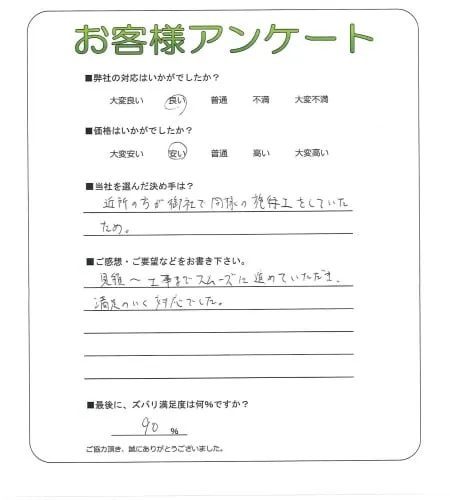 お客様アンケート
■弊社の対応はいかがでしたか？
大変良い 良い 普通 不満 大変不満
■価格はいかがでしたか？
大変安い 安い 普通 高い 大変高い
■当社を選んだ決め手は？
近所の方が御社で同様の施工をしていた
ため。
■ご感想・ご要望などをお書き下さい。
見積〜工事までスムーズに進めていただき、
満足のいく対応でした。
■最後に、ズバリ満足度は何%ですか？
90 %
ご協力頂き、誠にありがとうございました。